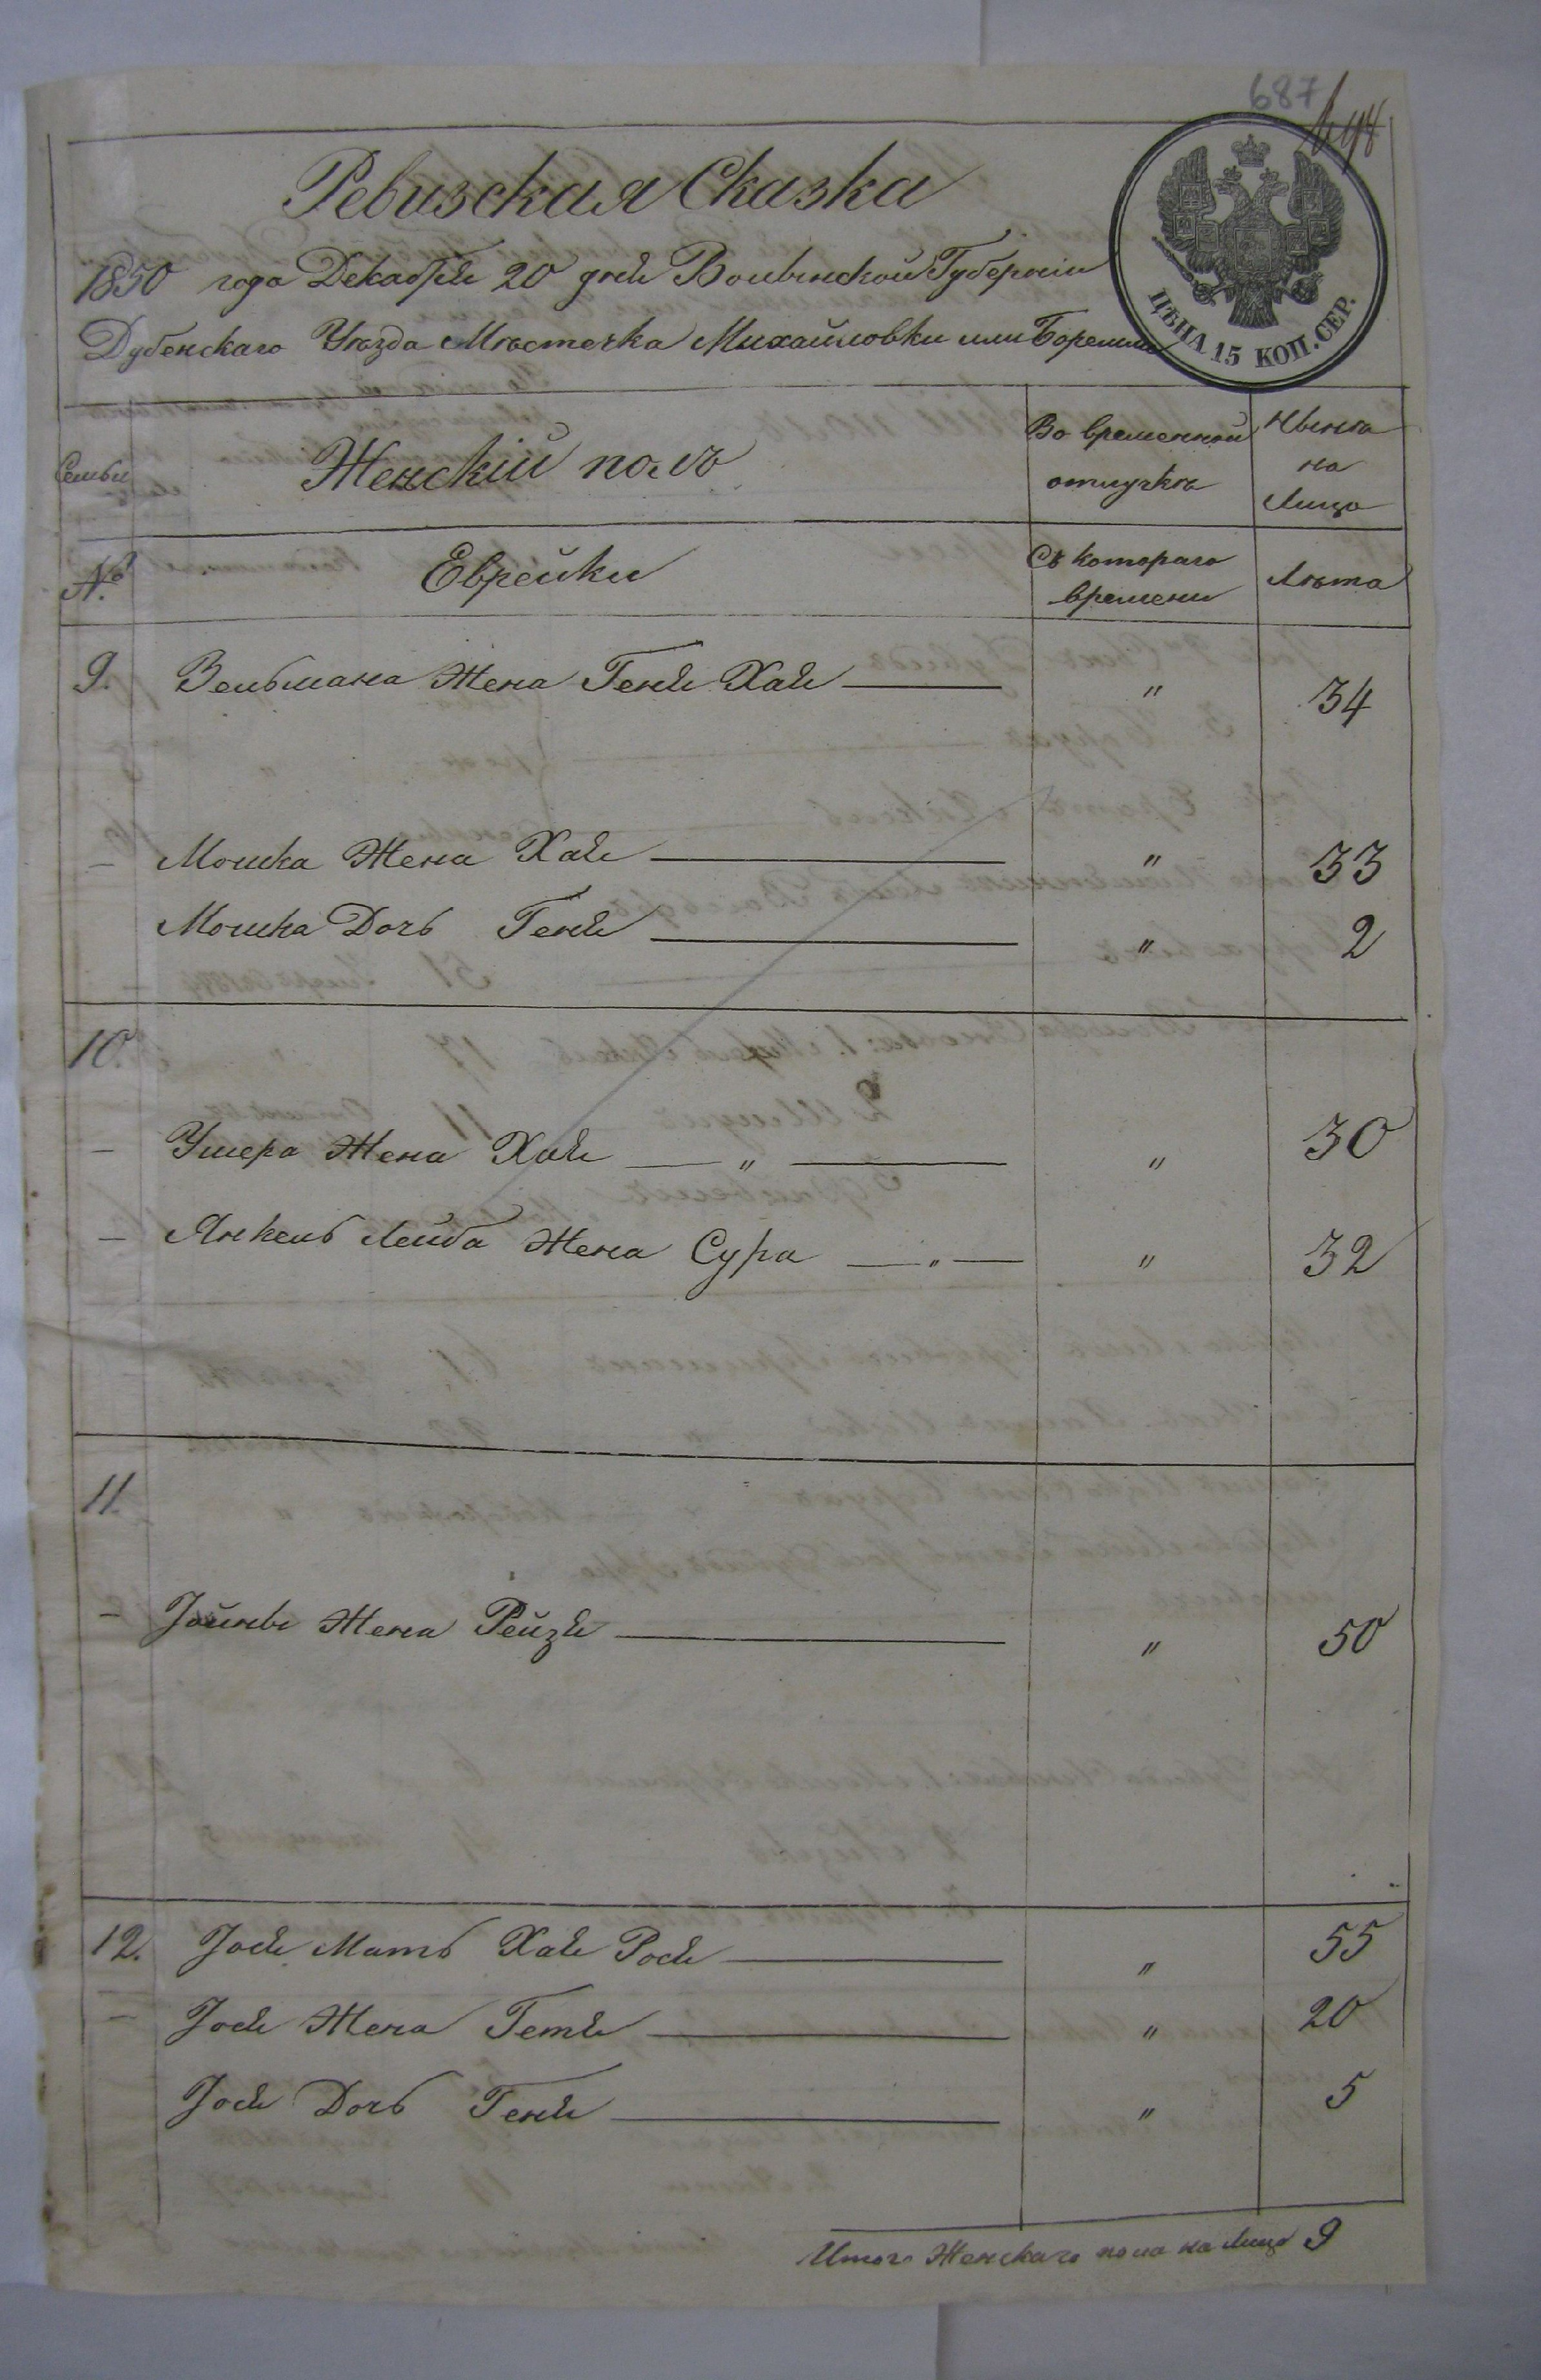 687
Ревизская Сказка
1850 года Декабря 20 дня Волынской Губерніи
Дубенскаго Уѣзда Мѣстечка Михайловки или Боремля
ЦѢНА 15 КОП. СЕР.
Семьи
Женскій полъ
Во временной отлучкѣ
Нынѣ на Лицо
№
Еврейки
Съ котораго времени
Лѣта
9. Зельмана Жена Геня Хая " 34
— Мошка Жена Хая " 33
Мошка Дочь Геня " 2
10.
— Ушера Жена Хая — " — " 30
— Янкель Лейба Жена Сура — " — " 32
11.
— Іойны Жена Рейзя " 50
12. Іося Мать Хая Рося " 55
— Іося Жена Гетя " 20
Іося Дочь Геня " 5
Итого Женскаго пола на Лицо 9